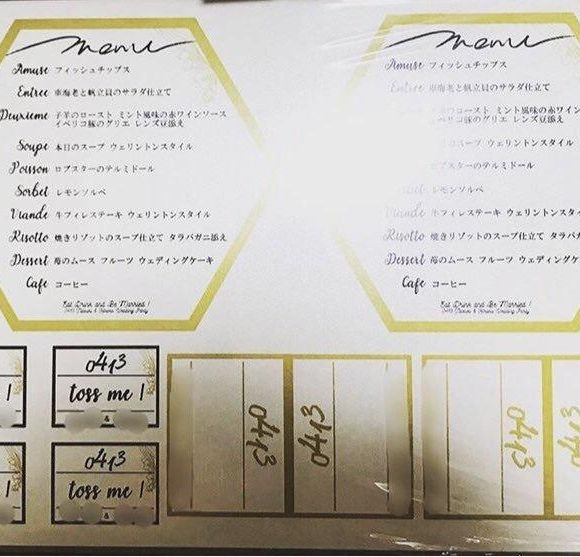 menu
Amuse フィッシュチップス
Entree 車海老と帆立貝のサラダ仕立て
Deuxieme 子羊のロースト ミント風味の赤ワインソース
イベリコ豚のグリエ レンズ豆添え
Soupe 本日のスープ ウェリントンスタイル
Poisson ロブスターのテルミドール
Sorbet レモンソルベ
Viande 牛フィレステーキ ウェリントンスタイル
Risotto 焼きリゾットのスープ仕立て タラバガニ添え
Dessert 苺のムース フルーツ ウェディングケーキ
Cafe コーヒー
Eat Drink and Be Married !
Wedding Party
menu
Amuse フィッシュチップス
Entree 車海老と帆立貝のサラダ仕立て
子羊のロースト ミント風味の赤ワ
イベリコ豚のグリエ レンズ豆添え
のスープ ウェリントンスタイル
ブスターのテルミドール
Sorbet レモンソルベ
Viande 牛フィレステーキ ウェリントンスタ
Risotto 焼きリゾットのスープ仕立て タラバガ
Dessert 苺のムース フルーツ ウェディングケ
Cafe コーヒー
Eat Drink and Be Married !
Wedding Party
!
0413
toss me !
&
0413
0413
0413
0
!
0413
toss me !
&